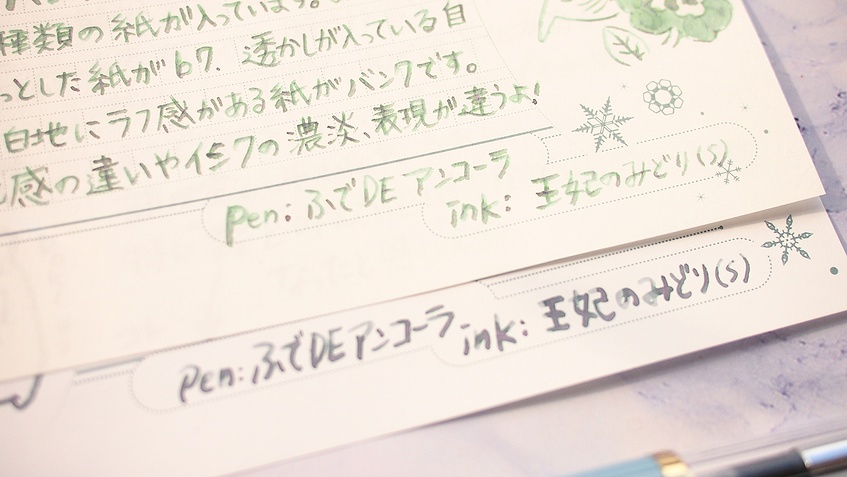 種類の紙が入っています。
っとした紙がb7. 透かしが入っている自
白地にラフ感がある紙がバンクです。
感の違いやインクの濃淡、表現が違うよ!
pen: ふでDEアンコーラ
ink: 王妃のみどり(S)
pen: ふでDEアンコーラ
ink: 王妃のみどり(S)